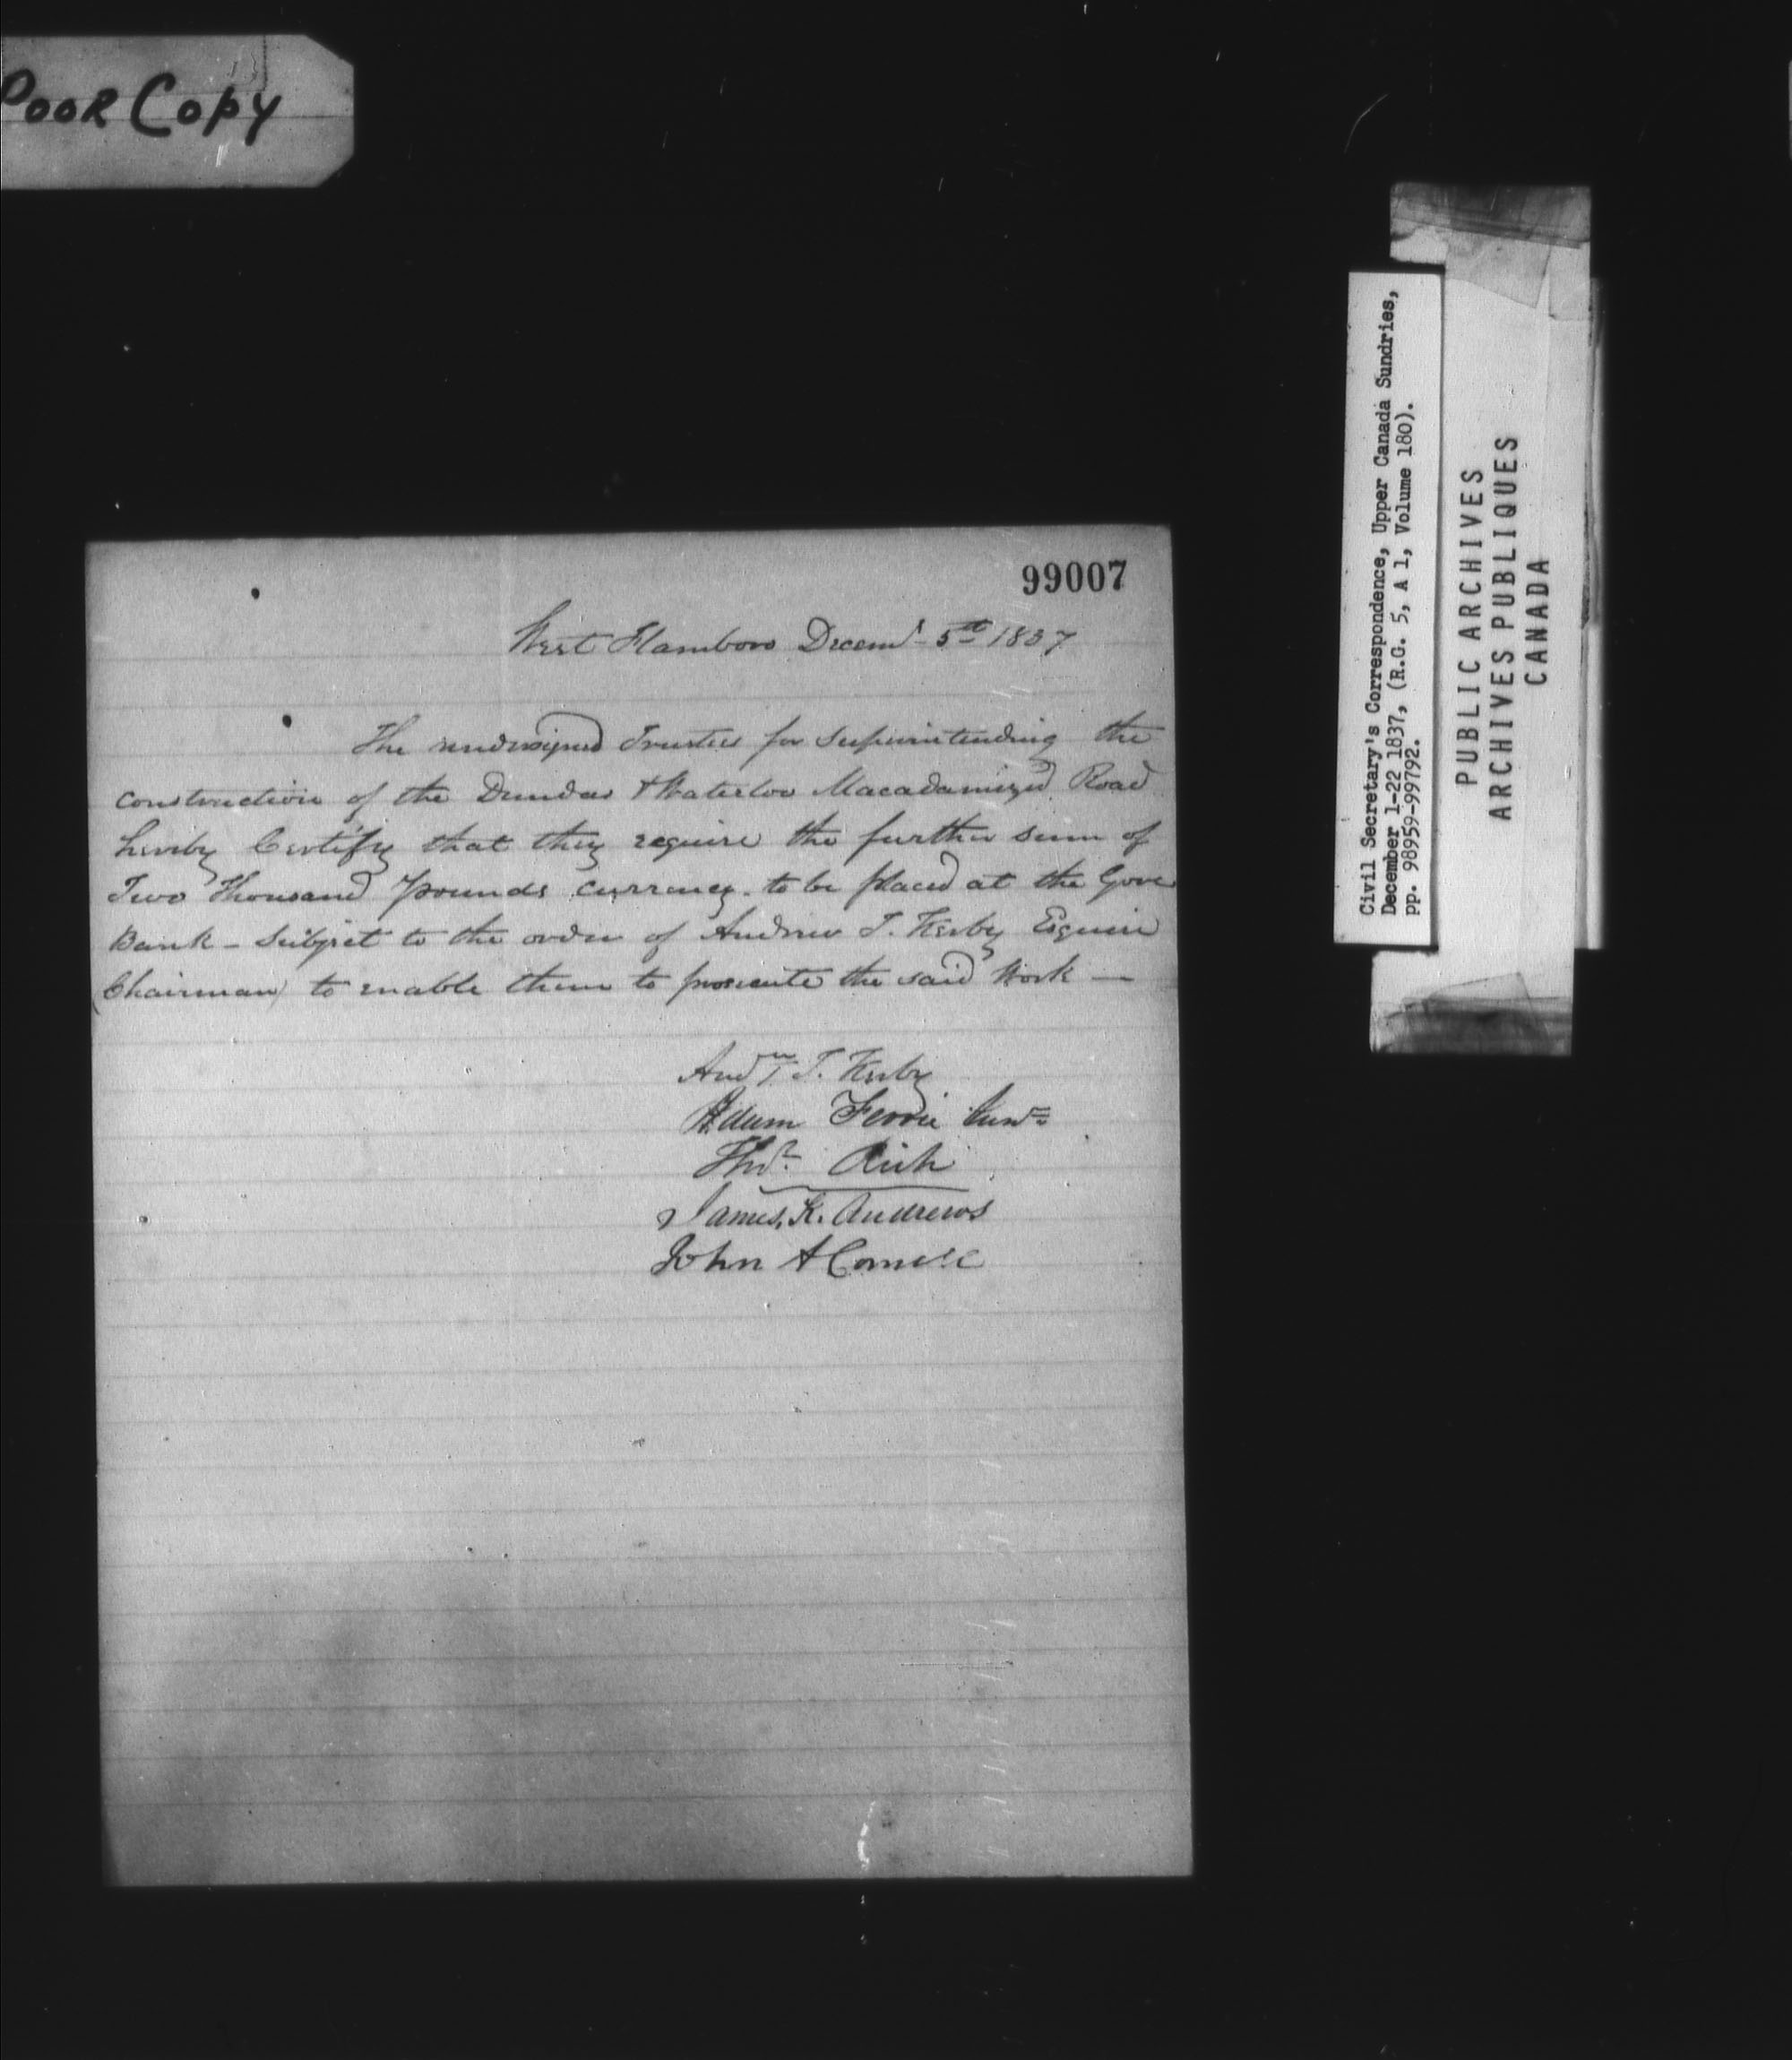 Poor Copy
99007
West Flamboro Decemr 5th 1837
The undersigned Trustees for Superintending the
construction of the Dundas & Waterloo Macadamized Road
hereby Certify that they require the further sum of
Two Thousand pounds currency. to be placed at the Gore
Bank - Subject to the order of Andrew T. Kerby Esquire
(Chairman) to enable them to prosecute the said Work —
Andw T. Kerby
Adam Ferrie Junr
Thos Rich
James. K. Andrews
John A Cornell
Civil Secretary's Correspondence, Upper Canada Sundries,
December 1-22 1837, (R.G. 5, A 1, Volume 180).
pp. 98959-99792.
PUBLIC ARCHIVES
ARCHIVES PUBLIQUES
CANADA